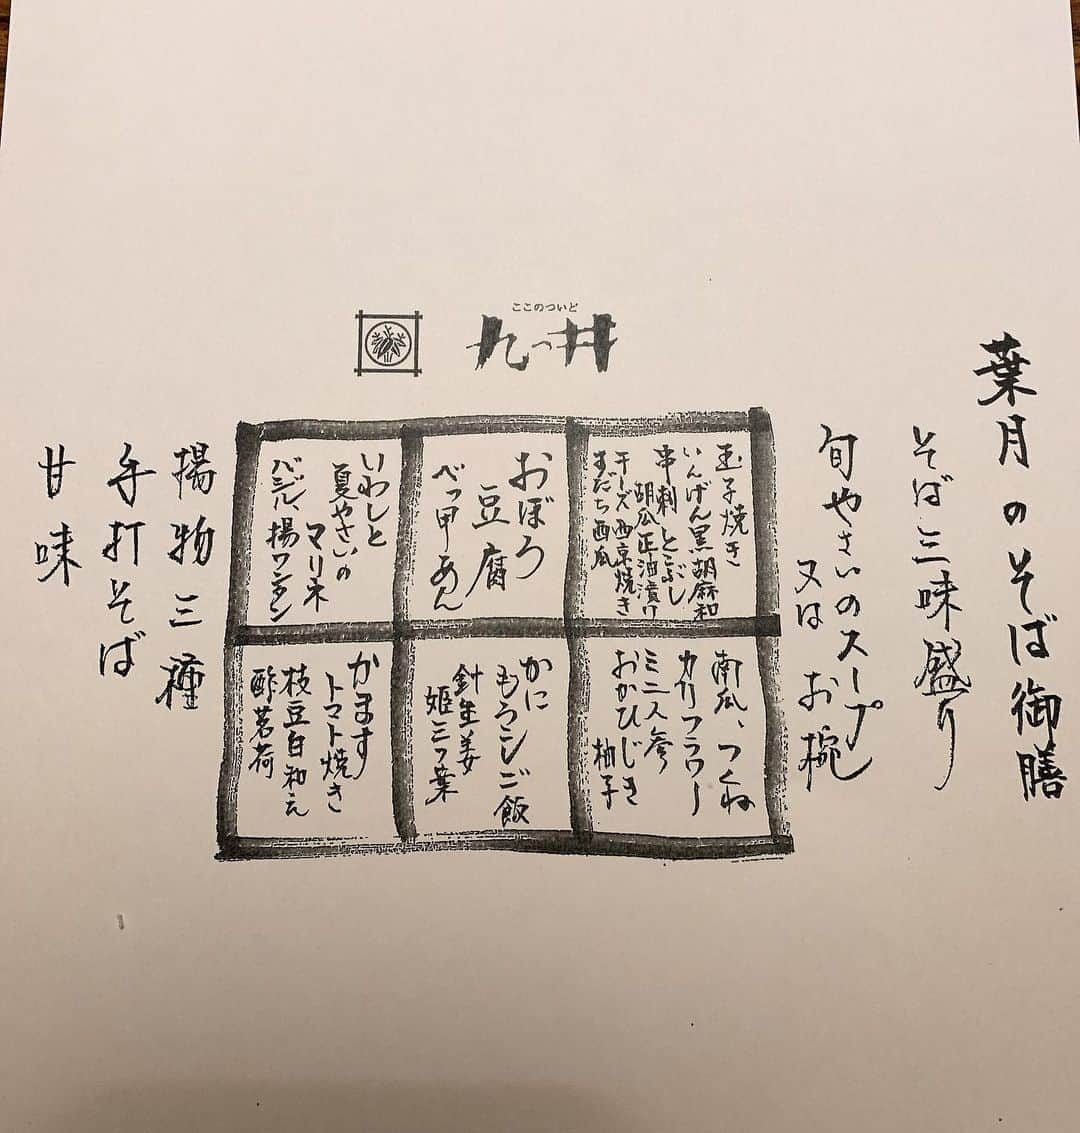 葉月のそば御膳
そば三味盛り
旬やさいのスープ
又は お椀
ここのついど
九つ井
玉子焼き
いんげん黒胡麻和
串刺しとこぶし
胡瓜正油漬け
チーズ西京焼き
すだち西瓜
おぼろ
豆腐
べっ甲あん
いわしと
夏やさいの
マリネ
バジル、揚ワンタン
南瓜、つくね
カリフラワー
ミニ人参
おかひじき
柚子
かに
もろこしご飯
針生姜
姫三つ葉
かます
トマト焼き
枝豆白和え
酢茗荷
揚物三種
手打そば
甘味